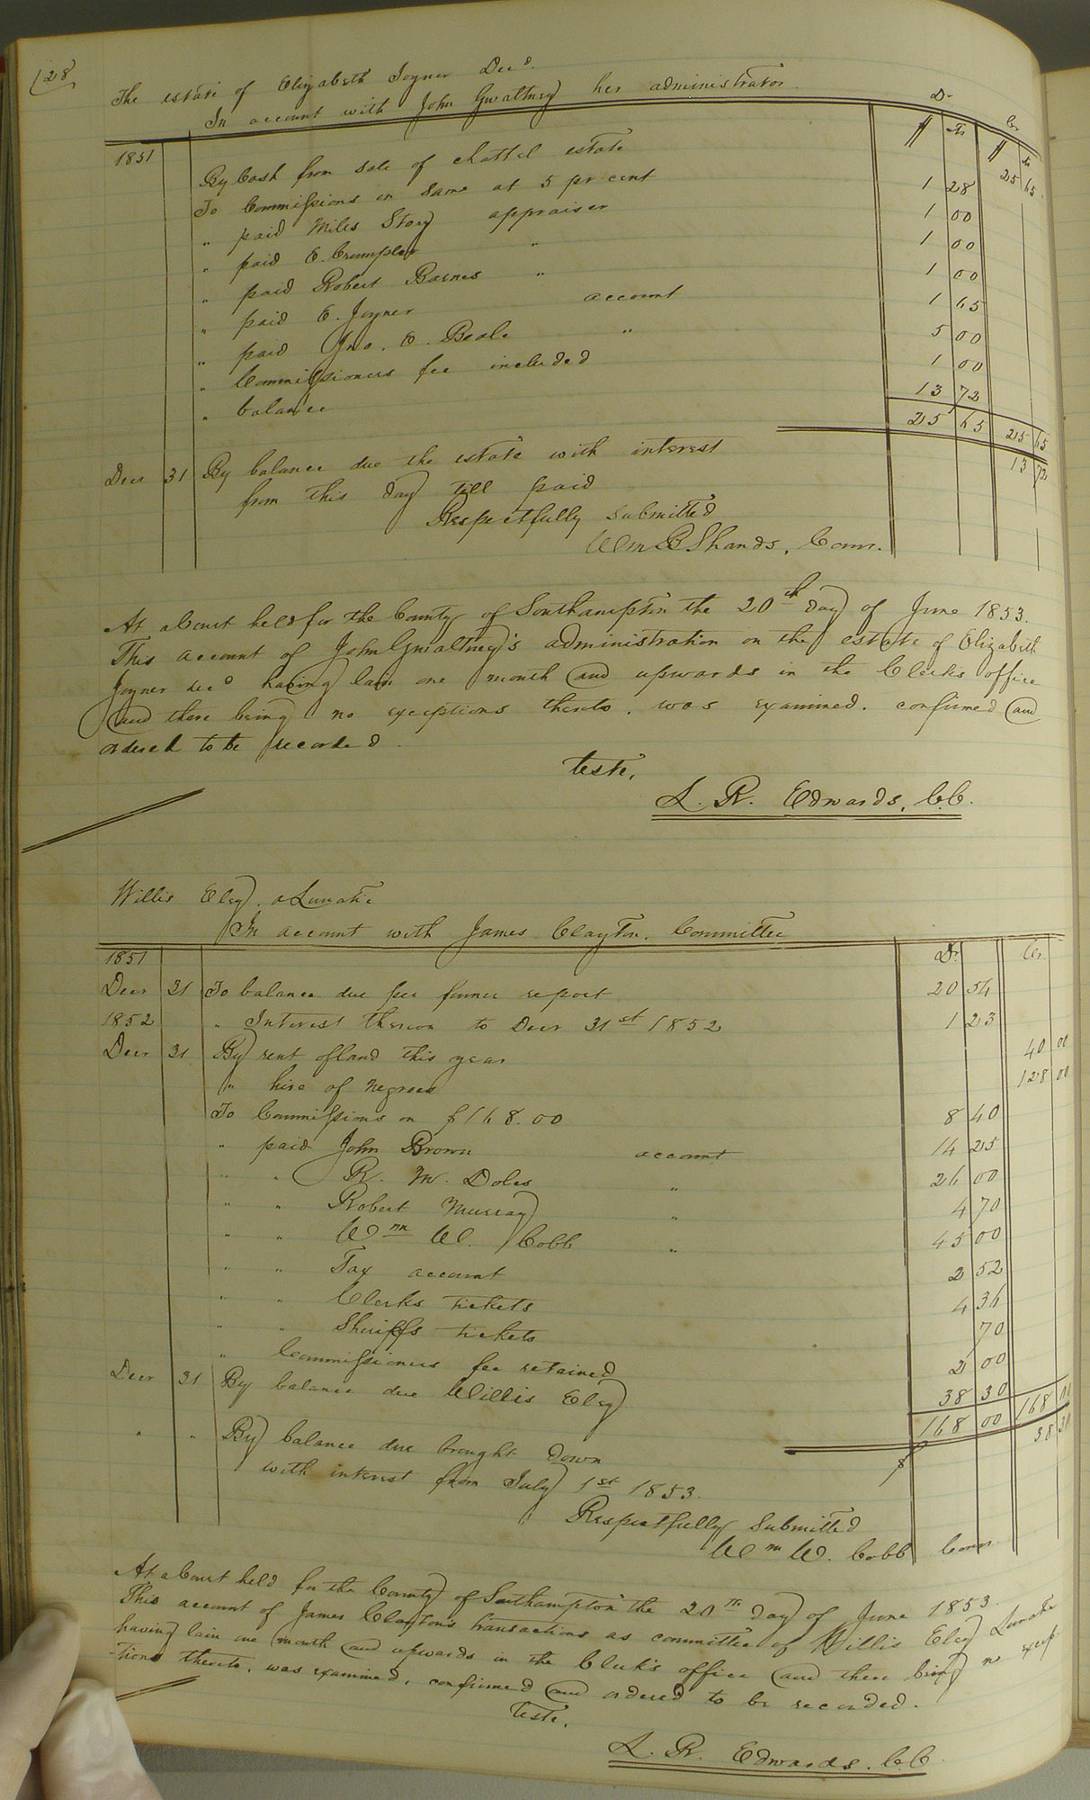 128
The estate of Elizabeth Joyner Decd.
In account with John Gwaltney her administrator
Dr. Cr.
1851 $ cts $ cts
By Cash from sale of chattel estate 25 65
To Commissions on same at 5 pr cent 1 28
" paid Miles Story appraiser 1 00
" paid E. Crumpler " 1 00
" paid Robert Barnes " 1 00
" paid E. Joyner account 1 65
" paid Jno. E. Beale " 5 00
" Commissioners fee included 1 00
" balance 13 72
25 65 25 65
Decr 31 By balance due the estate with interest 13 72
from this day till paid
Respectfully submitted
Wm B Shands, Comr.
At a Court held for the County of Southampton the 20th day of June 1853.
This account of John Gwaltney's administration on the estate of Elizabeth
Joyner decd having lain one month and upwards in the Clerks office
and there being no exceptions thereto, was examined, confirmed and
ordered to be recorded.
Teste,
L. R. Edwards, C.C.
Willis Eley, a Lunatic
In account with James Clayton, Committee
1851 Dr. Cr.
Decr 31 To balance due per former report 20 54
1852 " Interest thereon to Decr 31st 1852 1 23
Decr 31 By rent of land this year 40 00
" hire of negroes 128 00
To Commissions on $168.00 8 40
" paid John Brown account 14 25
" " R. M. Doles " 26 00
" " Robert Murray " 4 70
" " Wm W. Cobb " 45 00
" " Tax account 2 52
" " Clerks tickets 4 36
" " Sheriffs tickets 70
" Commissioners fee retained 2 00
Decr 31 By balance due Willis Eley 38 30
168 00 168 00
" " By balance due brought down 38 30
with interest from July 1st 1853.
Respectfully submitted
Wm W. Cobb Comr.
At a Court held for the County of Southampton the 20th day of June 1853.
This account of James Clayton's transactions as committee of Willis Eley Lunatic
having lain one month and upwards in the Clerk's office and there being no excep
-tions thereto, was examined, confirmed and ordered to be recorded.
Teste,
L. R. Edwards. C.C.